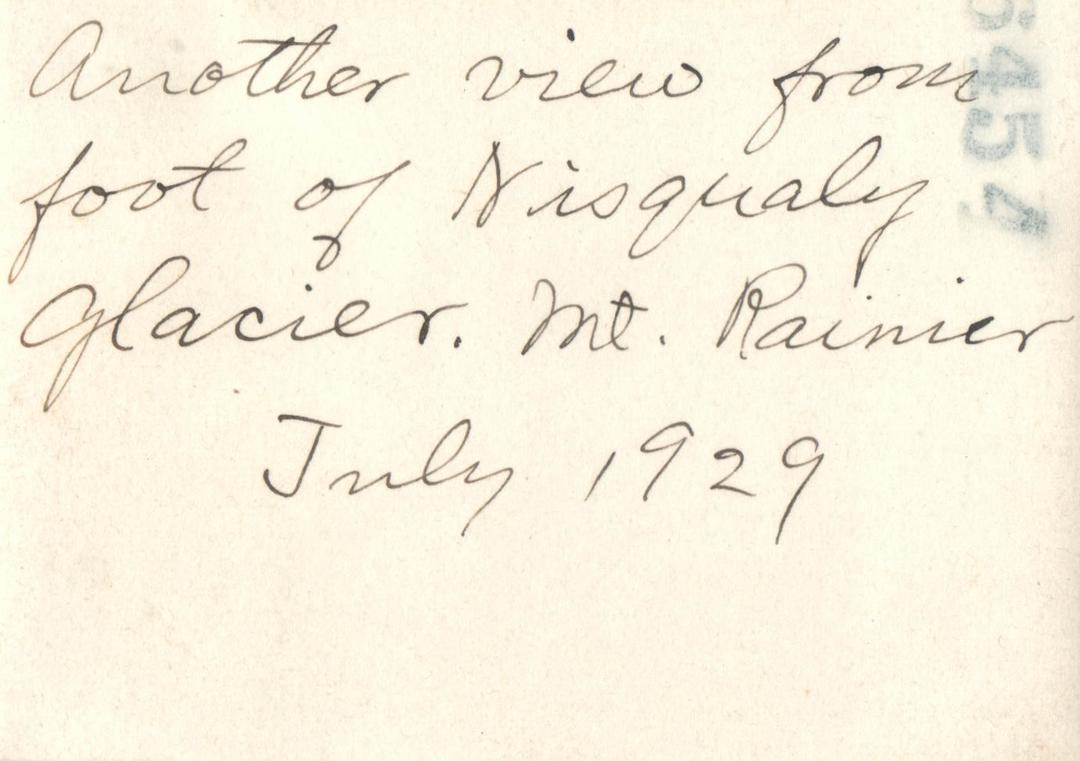 Another view from
foot of Nisqualy
Glacier. Mt. Rainier
July 1929